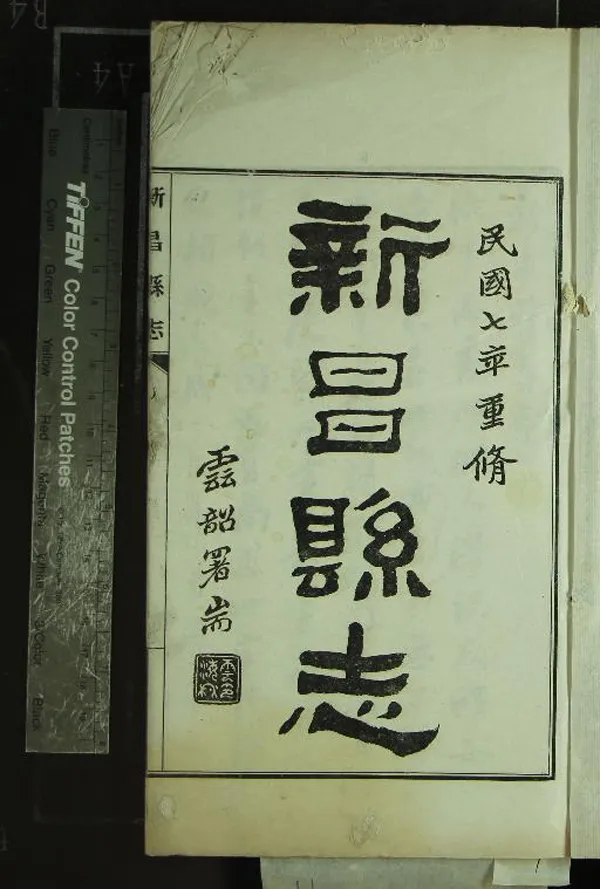 民國七年重脩
新昌縣志
雲韶署耑
新昌縣志
TIFFEN Color Control Patches
Centimetres
Blue
Cyan
Green
Yellow
Red
Magenta
White
3/Color
Black
A4